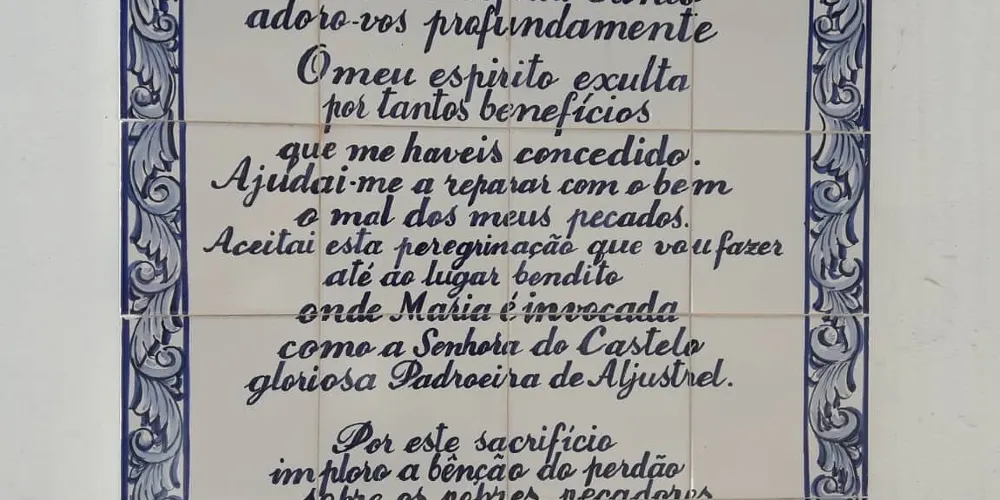 adoro-vos profundamente
O meu espirito exulta
por tantos benefícios
que me haveis concedido.
Ajudai-me a reparar com o bem
o mal dos meus pecados.
Aceitai esta peregrinação que vou fazer
até ao lugar bendito
onde Maria é invocada
como a Senhora do Castelo
gloriosa Padroeira de Aljustrel.
Por este sacrifício
imploro a bênção do perdão
sobre os pobres pecadores